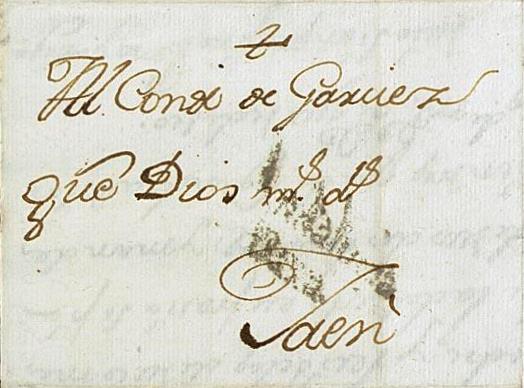 Al Conde de Garciez
que Dios m.s a.s
Jaen